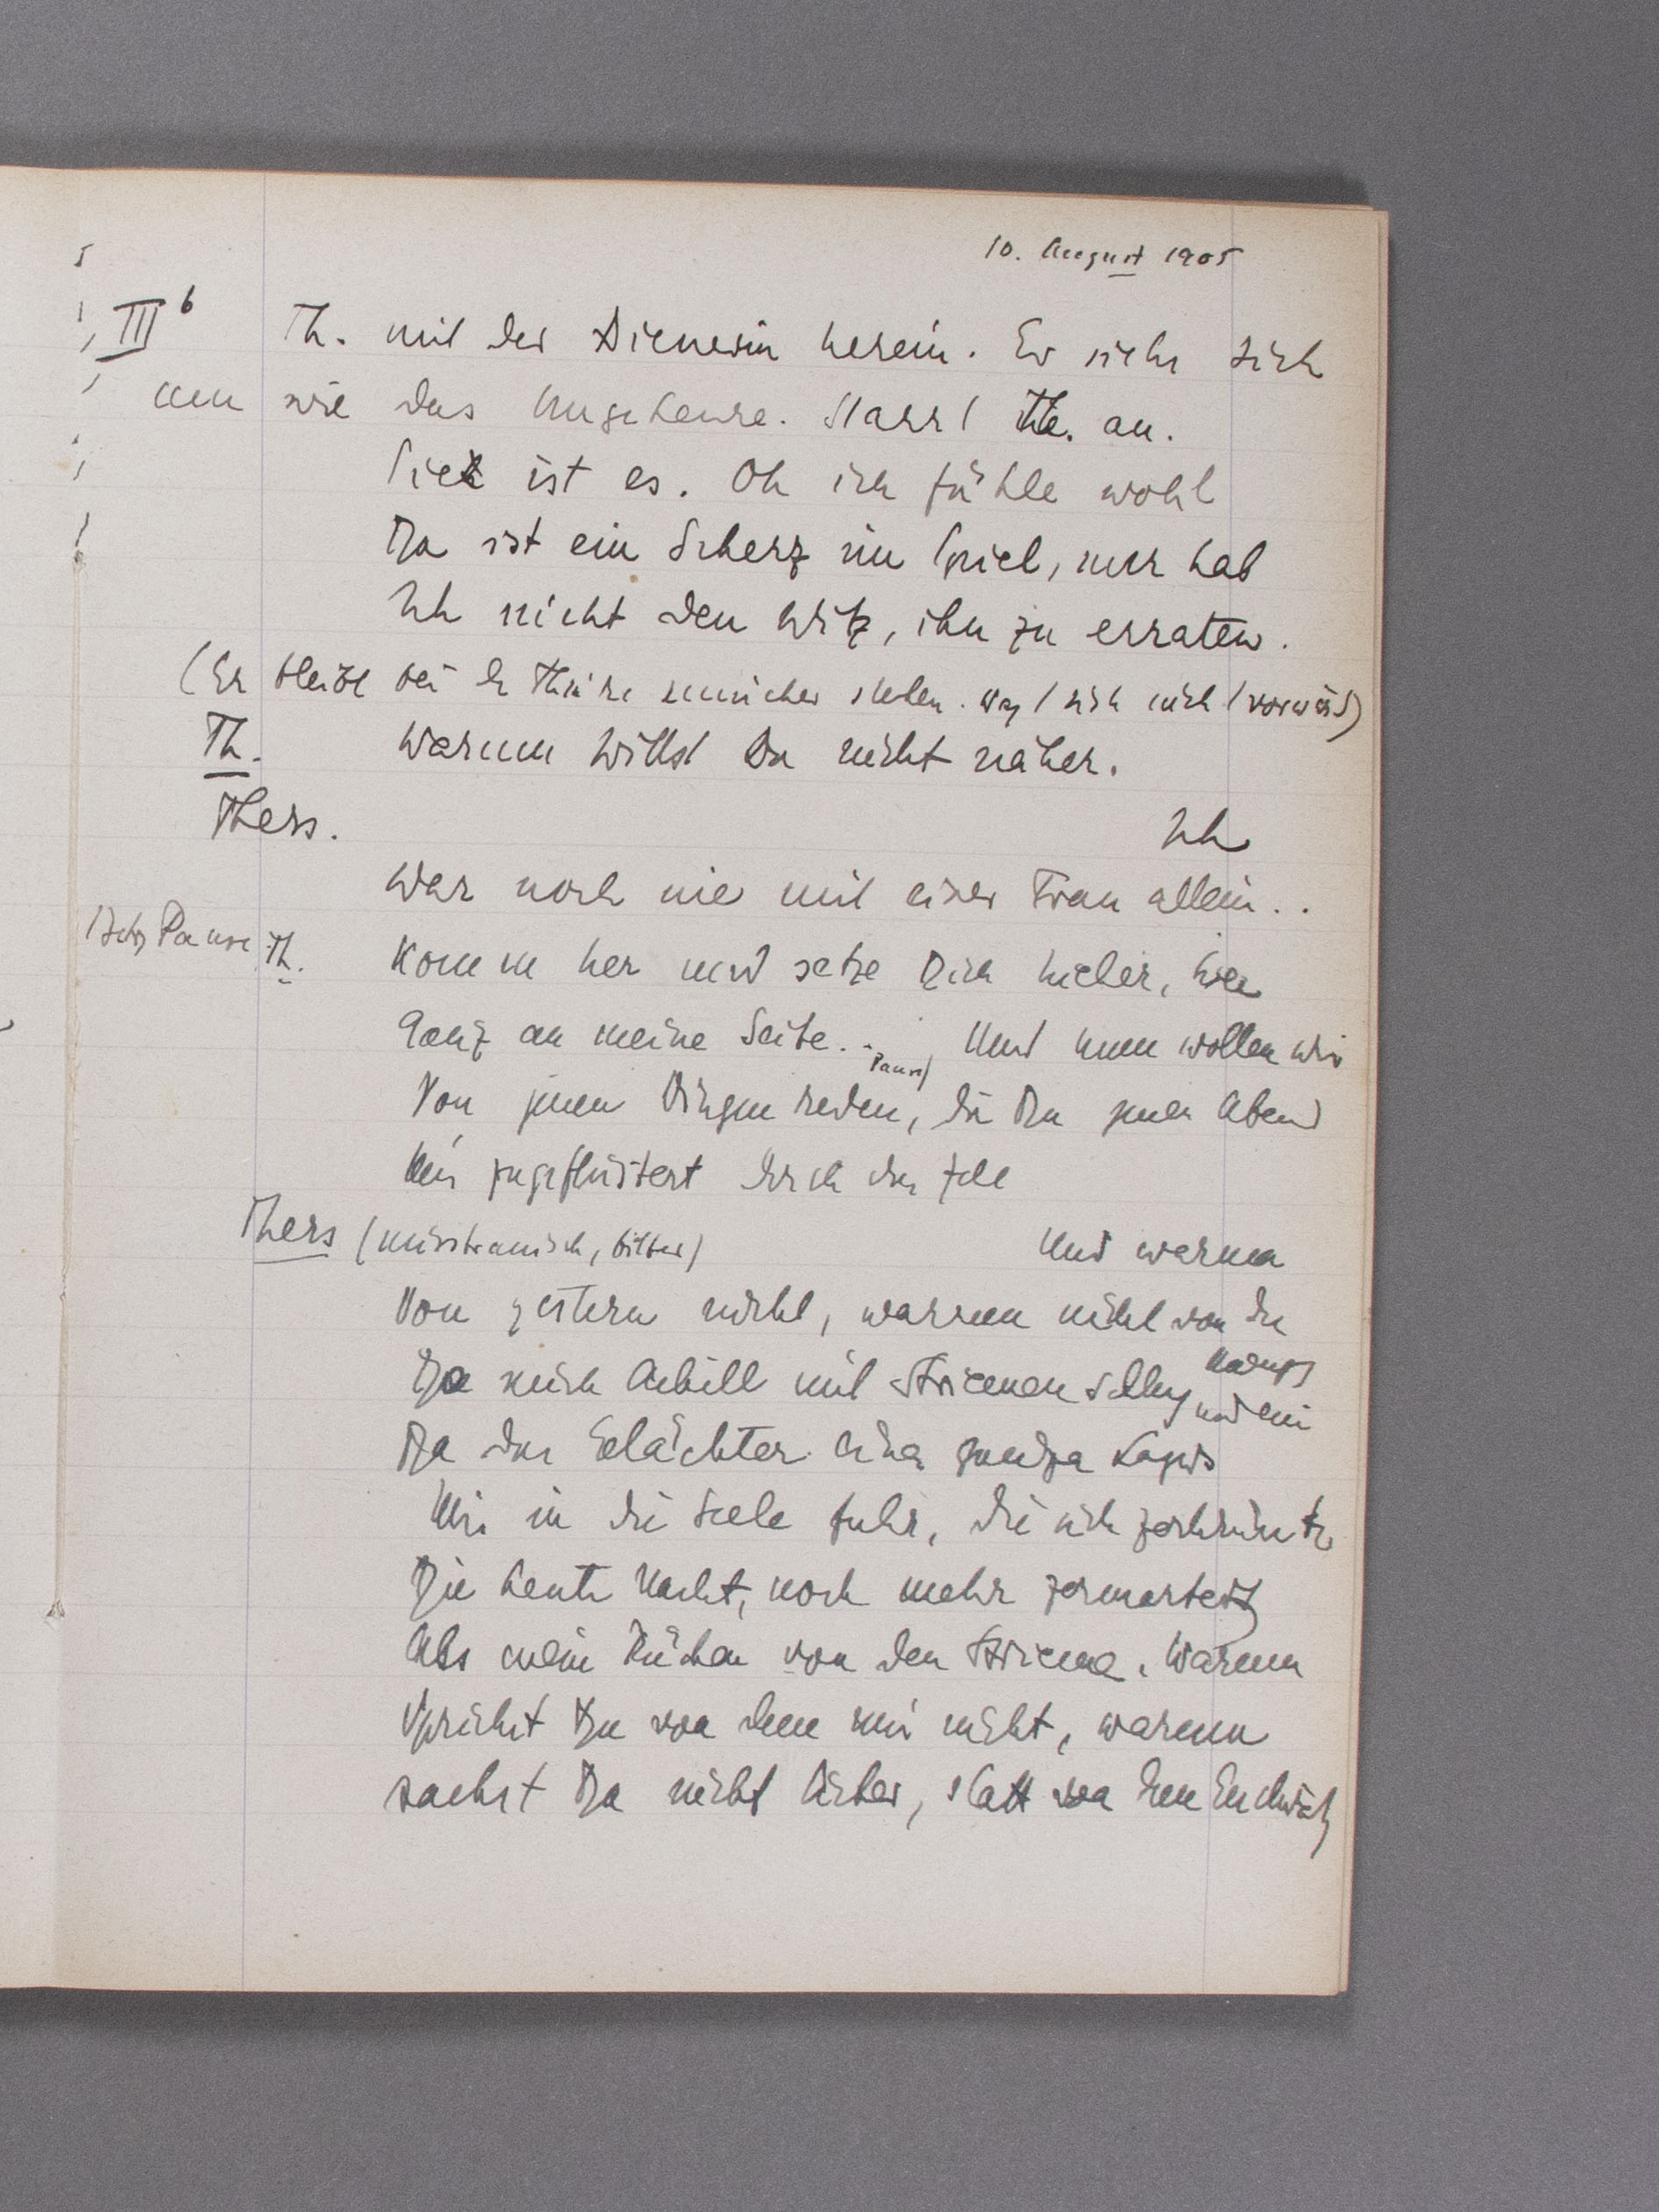 10. August 1905
III b Th. mit der Dienerin herein. Er sieht sich
um wie das Ungeheure. Starrt Th. an.
Sie ist es. Oh ich fühle wohl
Da ist ein Scherz im Spiel, nur hab
Ich nicht den Witz, ihn zu erraten.
(Er bleibt bei der Thüre unsicher stehen. wagt sich nicht vorwärts)
Th. Warum willst Du nicht näher.
Thers. Ich
War noch nie mit einer Frau allein..
Pause Th. Komm her und setze Dich hieher, hier
Ganz an meine Seite... Pause) Und nun wollen wir
Von jenen Dingen reden, die Du jenen Abend
Mir zugeflüstert durch das Zelt
Thers (misstrauisch, bitter) Und warum
Von gestern nicht, warum nicht von der
Da mich Achill mit Striemen schlug und ein
Da das Gelächter eines ganzen Lagers
Mir in die Seele fuhr, die sich
Die heute Nacht, noch mehr zermartert
Als mein Rücken von den Striemen. Warum
Sprichst Du von dem mir nicht, warum
Lachst Du nicht lieber, statt von dem